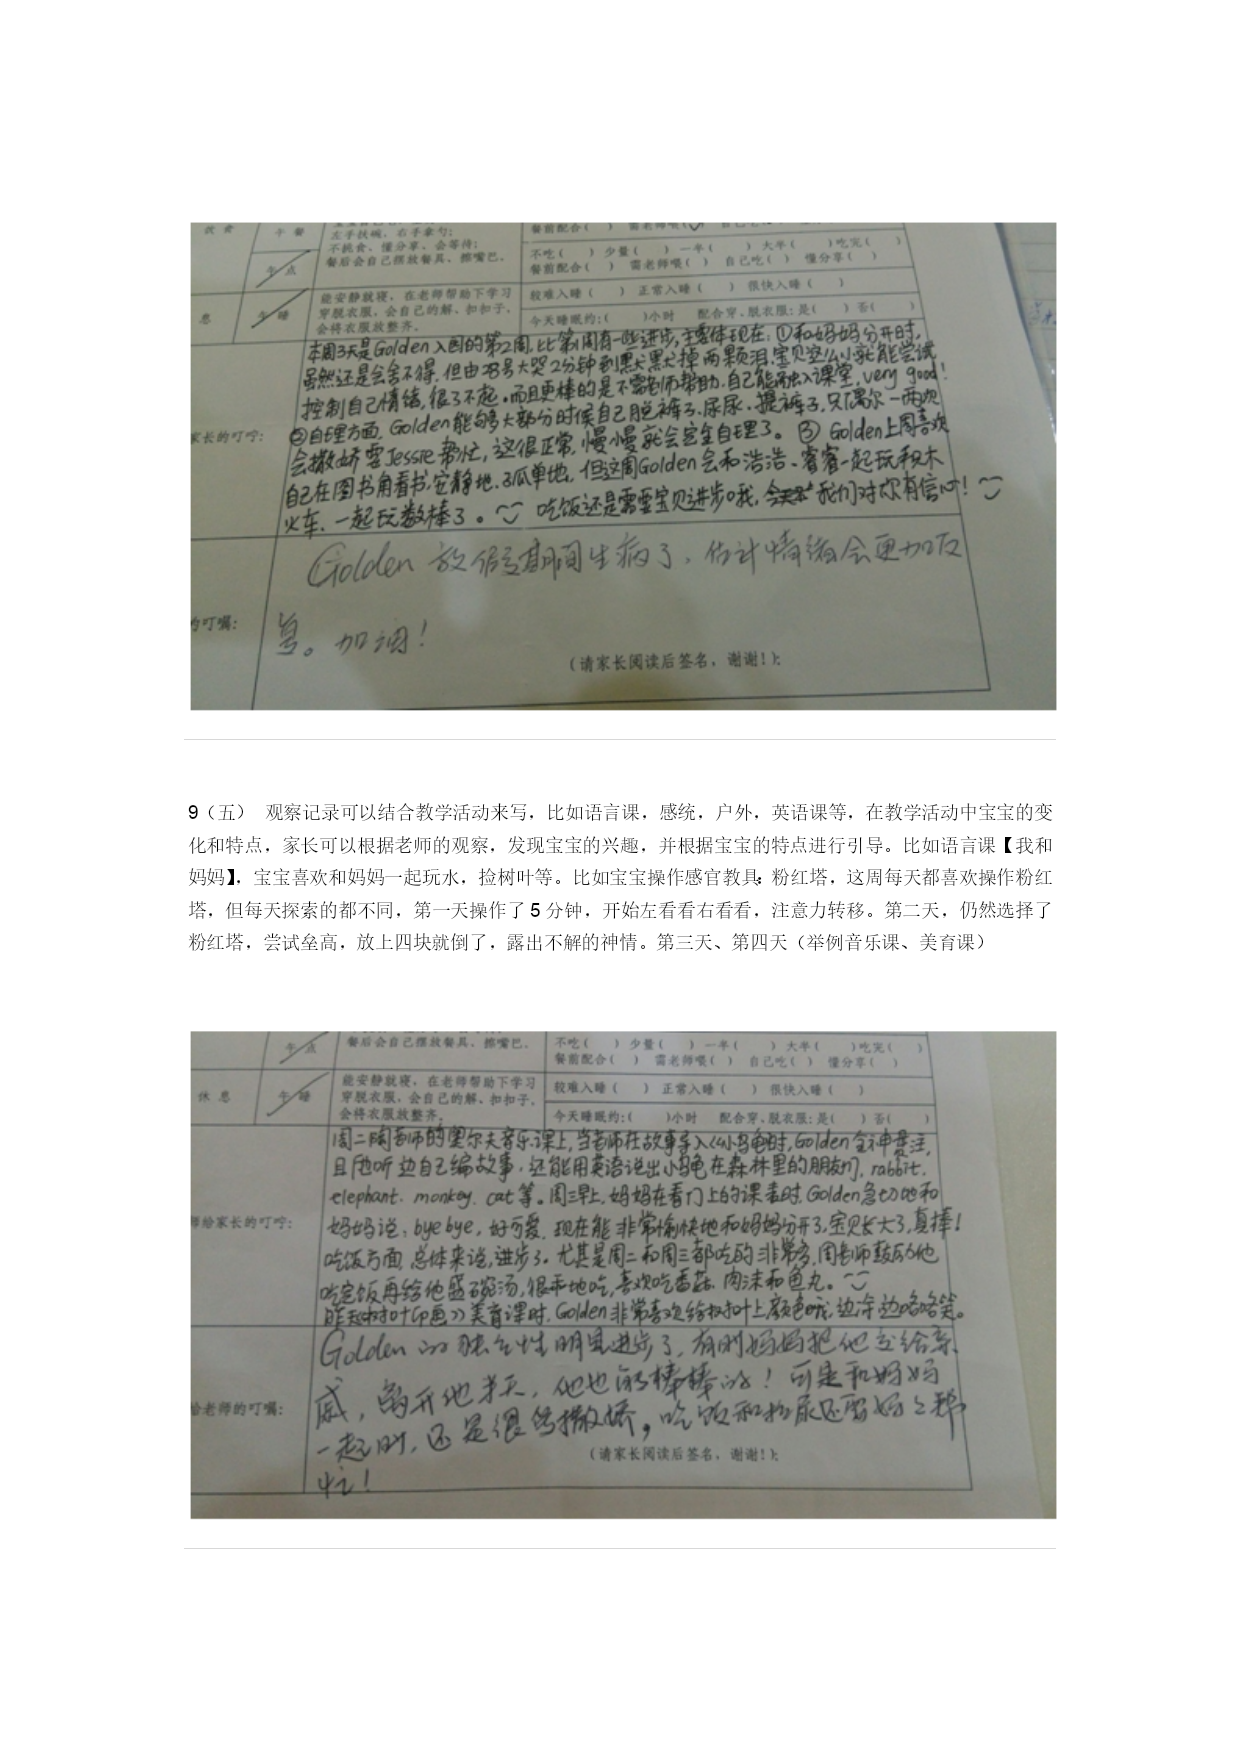 饮 食
午 餐
左手扶碗，右手拿勺；
不挑食、懂分享、会等待；
餐后会自己摆放餐具、擦嘴巴。
餐前配合（ ） 需老师喂（✓）
不吃（ ） 少量（ ） 一半（ ） 大半（ ）吃完（ ）
餐前配合（ ） 需老师喂（ ） 自己吃（ ） 懂分享（ ）
午 点
息
午 睡
能安静就寝，在老师帮助下学习
穿脱衣服，会自己的解、扣扣子，
会将衣服放整齐。
较难入睡（ ） 正常入睡（ ） 很快入睡（ ）
今天睡眠约:（ ）小时 配合穿、脱衣服: 是（ ）否（ ）
家长的叮咛:
本周3天是Golden入园的第2周，比第1周有一些进步，主要体现在：①和妈妈分开时，
虽然还是会舍不得，但由28号大哭2分钟到默默掉两颗泪，宝贝这么小就能尝试
控制自己情绪，很了不起。而且更棒的是不需老师帮助，自己能融入课堂，very good!
②自理方面，Golden能够大部分时候自己脱裤子、尿尿、提裤子，只偶尔一两次
会撒娇要Jessie帮忙，这很正常，慢慢就会完全自理了。③Golden上周喜欢
自己在图书角看书，安静地、孤单地，但这周Golden会和浩浩、睿睿一起玩积木
火车、一起玩数棒了。吃饭还是需要宝贝进步哦，我们对你有信心！
的叮嘱:
Golden 放假期间生病了，估计情绪会更加反
复。加油！
（请家长阅读后签名，谢谢！）:
9（五） 观察记录可以结合教学活动来写，比如语言课，感统，户外，英语课等，在教学活动中宝宝的变
化和特点，家长可以根据老师的观察，发现宝宝的兴趣，并根据宝宝的特点进行引导。比如语言课【我和
妈妈】，宝宝喜欢和妈妈一起玩水，捡树叶等。比如宝宝操作感官教具：粉红塔，这周每天都喜欢操作粉红
塔，但每天探索的都不同，第一天操作了5分钟，开始左看看右看看，注意力转移。第二天，仍然选择了
粉红塔，尝试垒高，放上四块就倒了，露出不解的神情。第三天、第四天（举例音乐课、美育课）
午 点
餐后会自己摆放餐具、擦嘴巴。
不吃（ ） 少量（ ） 一半（ ） 大半（ ）吃完（ ）
餐前配合（ ） 需老师喂（ ） 自己吃（ ） 懂分享（ ）
休 息
午 睡
能安静就寝，在老师帮助下学习
穿脱衣服，会自己的解、扣扣子，
会将衣服放整齐。
较难入睡（ ） 正常入睡（ ） 很快入睡（ ）
今天睡眠约:（ ）小时 配合穿、脱衣服: 是（ ）否（ ）
师给家长的叮咛:
周二陶老师的奥尔夫音乐课上，当老师在故事导入《小乌龟》时，Golden全神贯注，
且边听边自己编故事，还能用英语说出小乌龟在森林里的朋友们，rabbit.
elephant. monkey. cat等。周三早上，妈妈在看门上的课表时，Golden急切地和
妈妈说：bye bye，好可爱，现在能非常愉快地和妈妈分开了，宝贝长大了，真棒！
吃饭方面，总体来说，进步了。尤其是周二和周三都吃的非常多，周老师鼓励他
吃完饭再给他盛碗汤，很乖地吃，喜欢吃香菇、肉沫和鱼丸。
树叶印画》美育课时，Golden非常喜欢给树叶上颜色哦，边涂边咯咯笑。
给老师的叮嘱:
Golden 的独立性明显进步了，有时妈妈把他交给亲
戚，离开他半天，他也能棒棒的！可是和妈妈
一起时，还是很会撒娇，吃饭和拉尿还要妈妈帮
忙！
（请家长阅读后签名，谢谢！）: